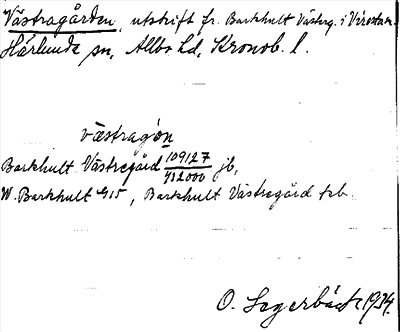 Västragården, utskift fr. Barkhult Västrg. i Virestad.
Härlunda sn, Allbo hd, Kronob. l.
västragən
Barkhult Västregård 109127/712000 jb,
W. Barkhult 915, Barkhult Västragård tab.
O. Lagerbäck 1934.